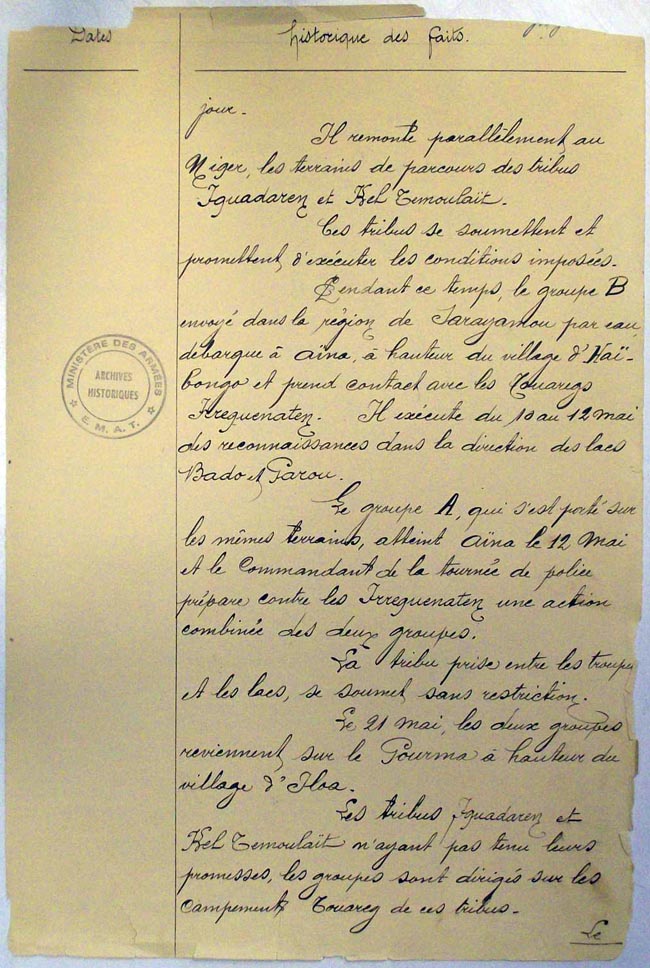 Dates
Historique des faits.
jour.
Il remonte parallèlement au
Niger, les terrains de parcours des tribus
Iguadaren et Kel Temoulaït.
Ces tribus se soumettent et
promettent d'exécuter les conditions imposées.
Pendant ce temps, le groupe B
envoyé dans la région de Sarayamou par eau,
débarque à Aïna, à hauteur du village d'Haï-
bongo et prend contact avec les Touaregs
Irreguenaten. Il exécute du 10 au 12 mai
des reconnaissances dans la direction des lacs
Bado et Garou.
Le groupe A, qui s'est porté sur
les mêmes terrains, atteint Aïna le 12 Mai
et le Commandant de la tournée de police
prépare contre les Irreguenaten une action
combinée des deux groupes.
La tribu prise entre les troupes
et les lacs, se soumet sans restriction.
Le 21 Mai, les deux groupes
reviennent sur le Gourma à hauteur du
village d'Iloa.
Les tribus Iguadaren et
Kel Temoulaït n'ayant pas tenu leurs
promesses, les groupes sont dirigés sur les
Campements Touareg de ces tribus.
Le
MINISTÈRE DES ARMÉES
ARCHIVES
HISTORIQUES
E. M. A. T.